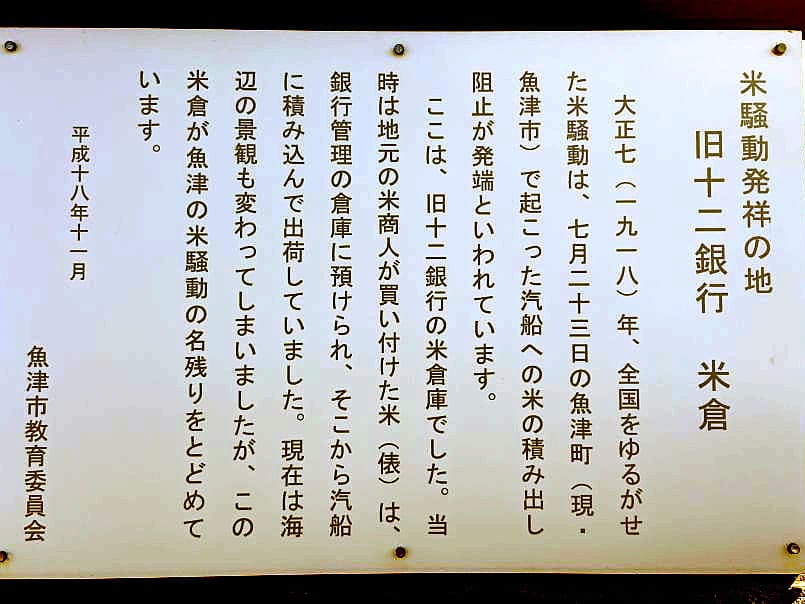 米騒動発祥の地
旧十二銀行 米倉
大正七（一九一八）年、全国をゆるがせ
た米騒動は、七月二十三日の魚津町（現・
魚津市）で起こった汽船への米の積み出し
阻止が発端といわれています。
ここは、旧十二銀行の米倉庫でした。当
時は地元の米商人が買い付けた米（俵）は、
銀行管理の倉庫に預けられ、そこから汽船
に積み込んで出荷していました。現在は海
辺の景観も変わってしまいましたが、この
米倉が魚津の米騒動の名残りをとどめて
います。
平成十八年十一月
魚津市教育委員会